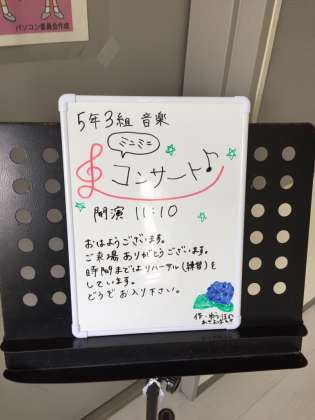 パソコン委員会作成
5年3組 音楽
ミニミニ
コンサート♪
開演 11:10
おはようございます。
ご来場ありがとうございます。
時間まではリハーサル(練習)を
しています。
どうぞお入り下さい。